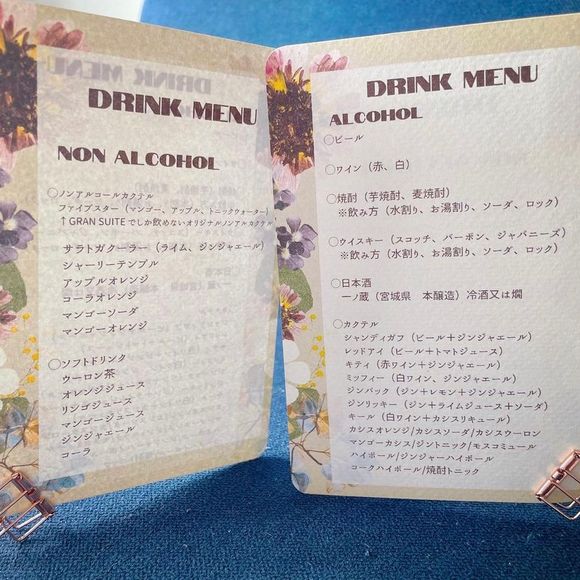 DRINK MENU
NON ALCOHOL
○ノンアルコールカクテル
ファイブスター（マンゴー、アップル、トニックウォーター）
↑GRAN SUITEでしか飲めないオリジナルノンアルカクテル
サラトガクーラー（ライム、ジンジャエール）
シャーリーテンプル
アップルオレンジ
コーラオレンジ
マンゴーソーダ
マンゴーオレンジ
○ソフトドリンク
ウーロン茶
オレンジジュース
リンゴジュース
マンゴージュース
ジンジャエール
コーラ
DRINK MENU
ALCOHOL
○ビール
○ワイン（赤、白）
○焼酎（芋焼酎、麦焼酎）
※飲み方（水割り、お湯割り、ソーダ、ロック）
○ウイスキー（スコッチ、バーボン、ジャパニーズ）
※飲み方（水割り、お湯割り、ソーダ、ロック）
○日本酒
一ノ蔵（宮城県　本醸造）冷酒又は燗
○カクテル
シャンディガフ（ビール＋ジンジャエール）
レッドアイ（ビール＋トマトジュース）
キティ（赤ワイン＋ジンジャエール）
ミッフィー（白ワイン、ジンジャエール）
ジンバック（ジン＋レモン＋ジンジャエール）
ジンリッキー（ジン＋ライムジュース＋ソーダ）
キール（白ワイン＋カシスリキュール）
カシスオレンジ/カシスソーダ/カシスウーロン
マンゴーカシス/ジントニック/モスコミュール
ハイボール/ジンジャーハイボール
コークハイボール/焼酎トニック